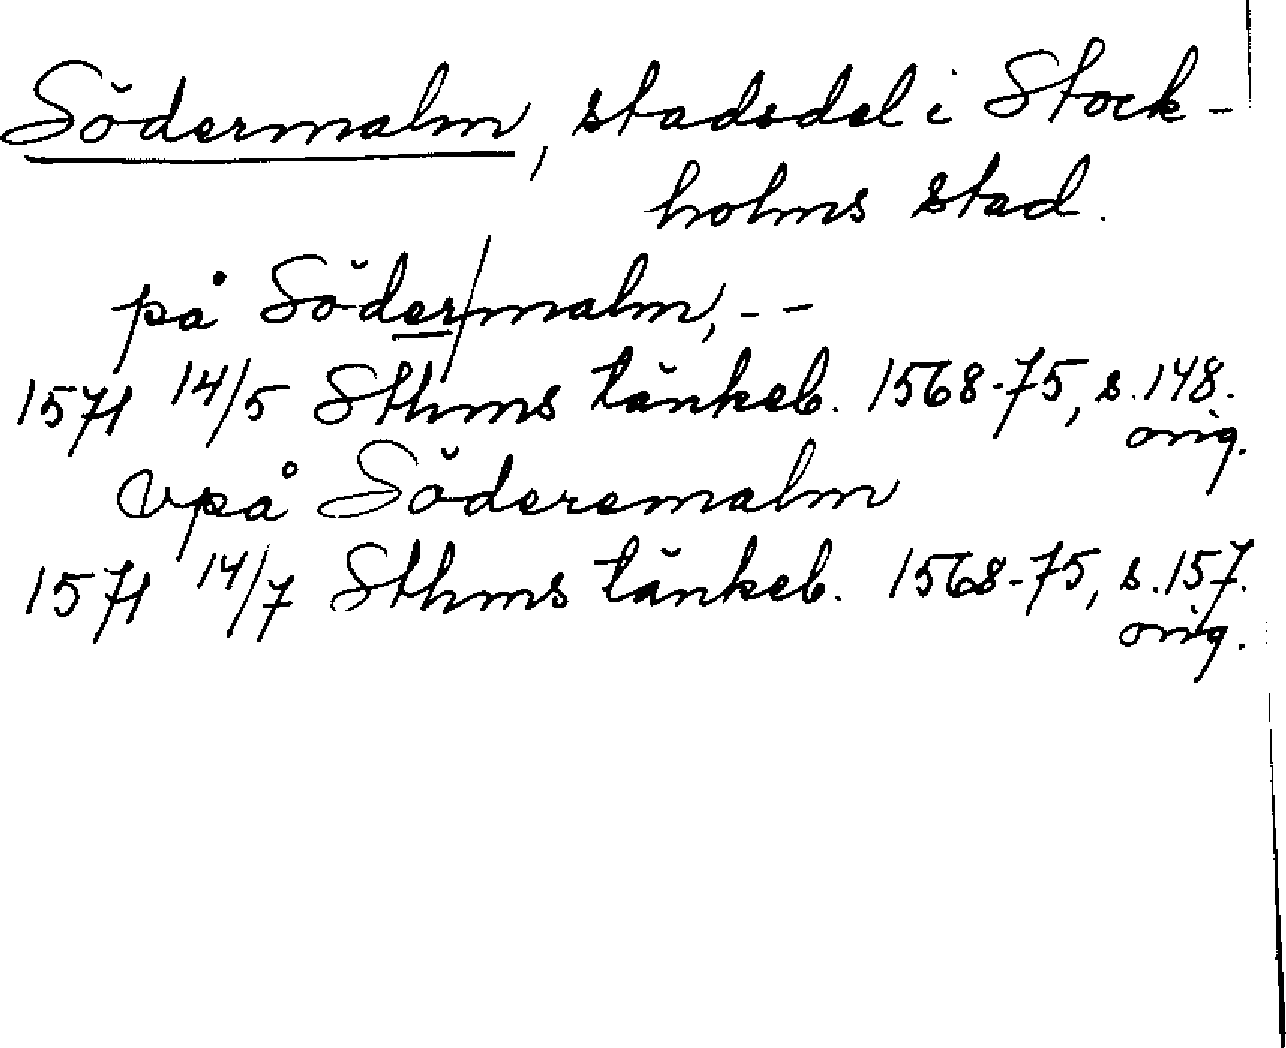 Södermalm, stadsdel i Stock-
holms stad.
på Söder/malm, - -
1571 14/5 Sthms tänkeb. 1568-75, s. 148.
orig.
vpå Söderemalm
1571 14/7 Sthms tänkeb. 1568-75, s. 157.
orig.